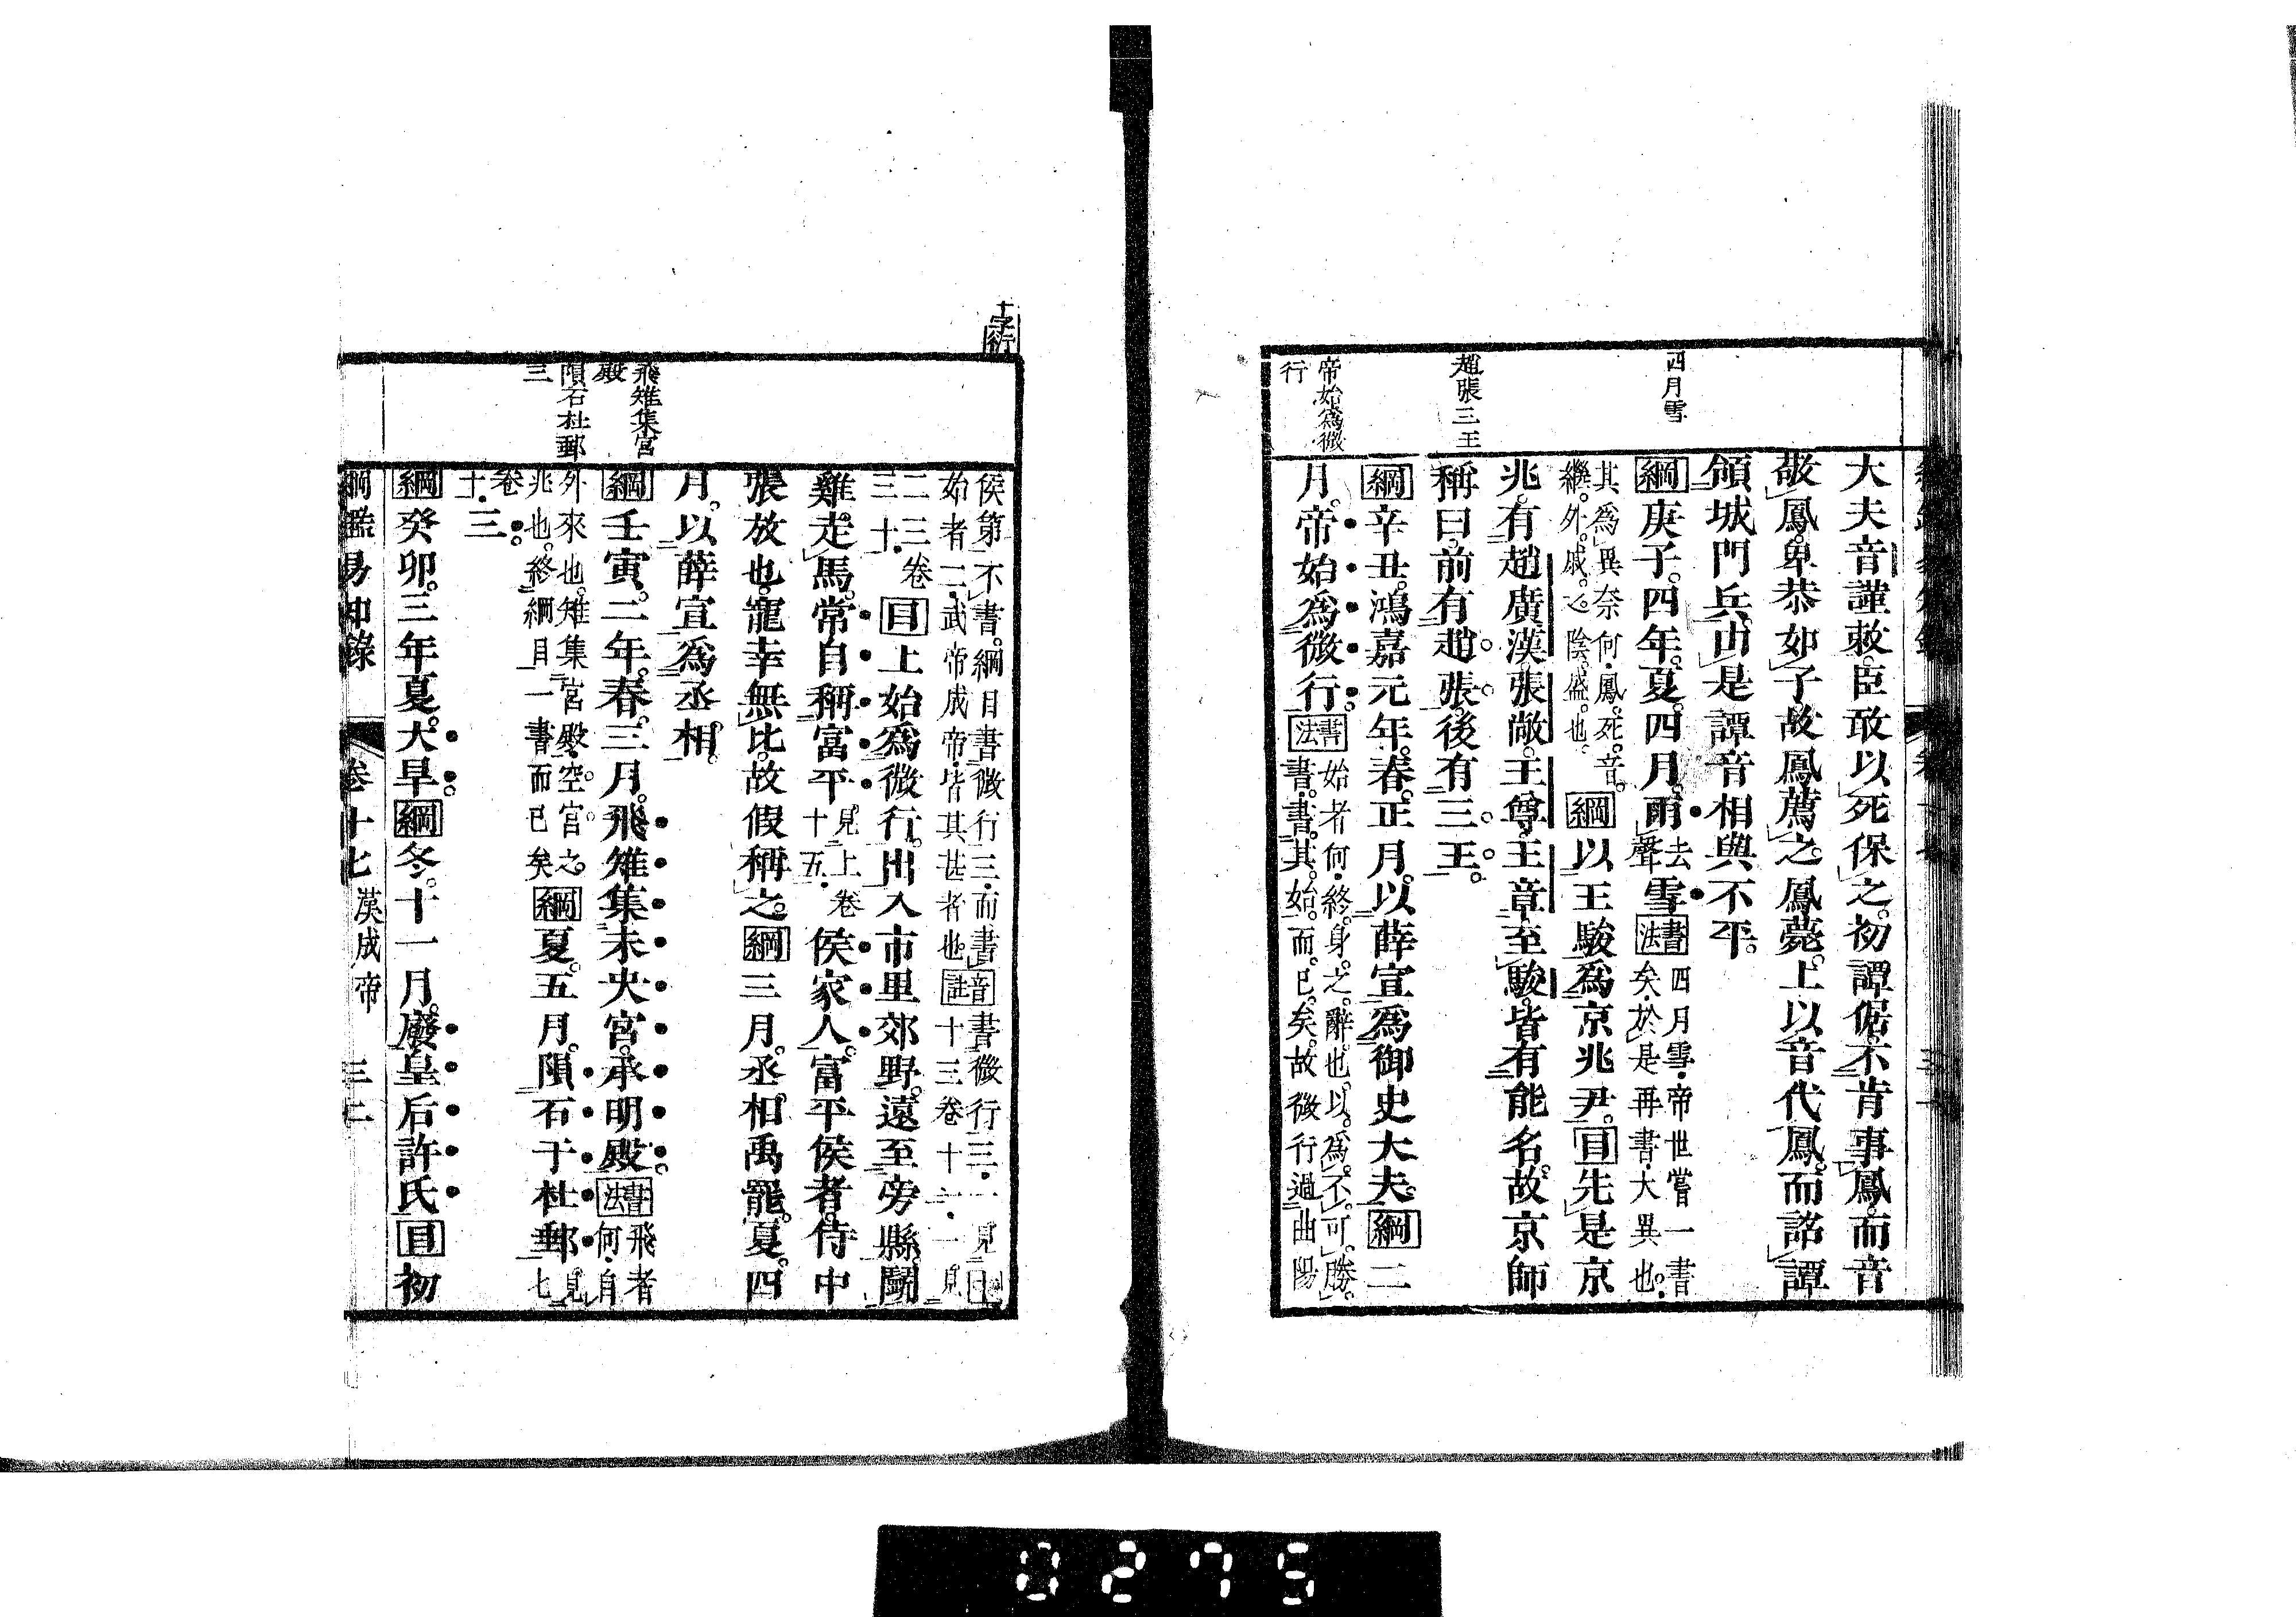 四月雪
趙張三王
帝始爲微
行
大夫音謹敕臣敢以死保之初譚倨不肯事鳳而音
敬鳳卑恭如子故鳳薦之鳳薨上以音代鳳而詔譚
領城門兵由是譚音相與不平
綱庚子四年夏四月雨去聲雪書法四月雪帝世嘗一書矣於是再書大異也
其爲異奈何鳳死音繼外戚之陰盛也綱以王駿爲京兆尹目先是京
兆有趙廣漢張敞王尊王章至駿皆有能名故京師
稱曰前有趙張後有三王
綱辛丑鴻嘉元年春正月以薛宣爲御史大夫綱二
月帝始爲微行書法始者何終身之辭也以爲不可勝書書其始而已矣故微行過曲陽
十字衍
飛雉集宮
殿
隕石杜郵
三
侯第不書綱目書微行三而書始者二武帝成帝皆其甚者也音註書微行三一見十三卷十六一見
二三卷三十目上始爲微行出入市里郊野遠至旁縣鬭
雞走馬常自稱富平見上卷十五侯家人富平侯者侍中
張放也寵幸無比故假稱之綱三月丞相禹罷夏四
月以薛宣爲丞相
綱壬寅二年春三月飛雉集未央宮承明殿書法飛者何自
外來也雉集宮殿空宮之兆也終綱目一書而已矣綱夏五月隕石于杜郵見七
卷十三
綱癸卯三年夏大旱綱冬十一月廢皇后許氏目初
綱鑑易知錄 卷十七 漢成帝 三二